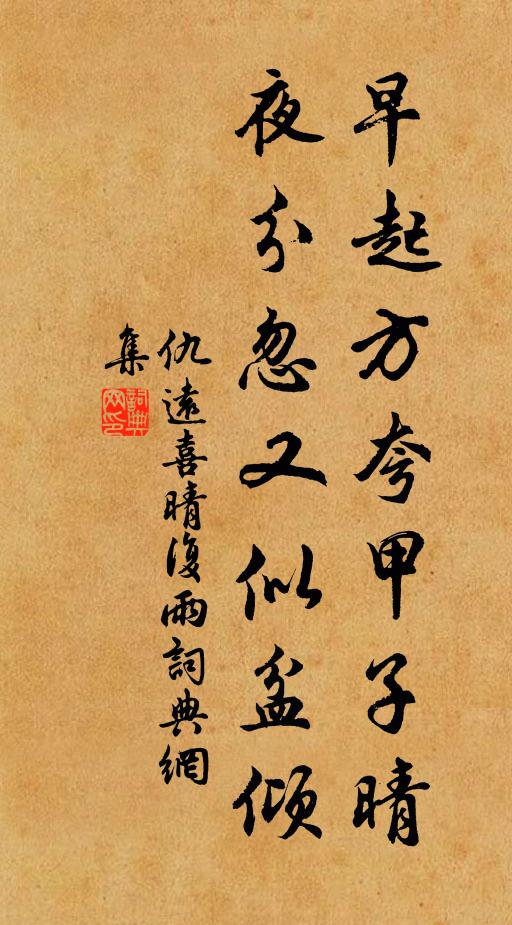 早起方夸甲子晴
夜分忽又似盆傾
仇遠喜晴復雨詞典網
集
詞典網印